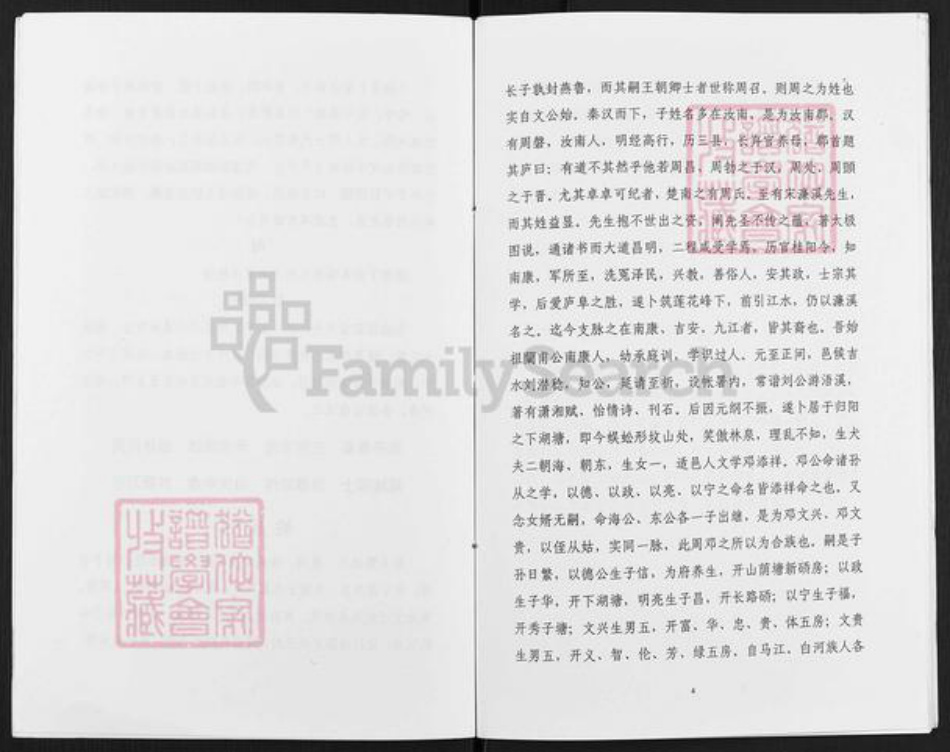 长子孰封燕鲁，而其嗣王朝卿士者世称周召。则周之为姓也
实自文公始。秦汉而下，子姓名多在汝南，是为汝南郡。汉
有周磐，汝南人，明经高行，历三县，长弃官养母，鄰首题
其庐曰：有道不其然乎他若周昌、周勃之于汉，周处、周顗
之于晋，尤其卓卓可纪者，楚南之有周氏，至有宋濂溪先生，
而其姓益显。先生抱不世出之资，阐先圣不传之蕴，著太极
图说，通诸书而大道昌明，二程咸受学焉，历官桂阳令，知
南康，军所至，洗冤泽民，兴教，善俗人，安其政，士宗其
学，后爱庐阜之胜，遂卜筑莲花峰下，前引江水，仍以濂溪
名之。迄今支脉之在南康、吉安、九江者，皆其裔也。吾始
祖蘭甫公南康人，幼承庭训，学识过人。元至正间，邑侯吉
水刘潜稔，知公，延请至祈，设帐署内，常谐刘公游浯溪，
著有潇湘赋，怡情诗、刊石。后因元纲不振，遂卜居于归阳
之下湖塘，即今蜈蚣形坟山处，笑傲林泉，理乱不知，生犬
夫二朝海、朝东，生女一，适邑人文学邓添祥。邓公命诸孙
从之学，以德、以政、以亮、以宁之命名皆添祥命之也。又
念女婿无嗣，命海公、东公各一子出继，是为邓文兴、邓文
贵，以侄从姑，实同一脉，此周邓之所以为合族也。嗣是子
孙日繁，以德公生子信，为府养生，开山荫塘新硕房；以政
生子华，开下湖塘，明亮生子昌，开长路硕；以宁生子福，
开秀子塘；文兴生男五，开富、华、忠、贵、体五房；文贵
生男五，开义、智、伦、芳、绿五房，自马江、白河族人各
4
FamilySearch
猶他家
譜學會
收藏
猶他家
譜學會
收藏